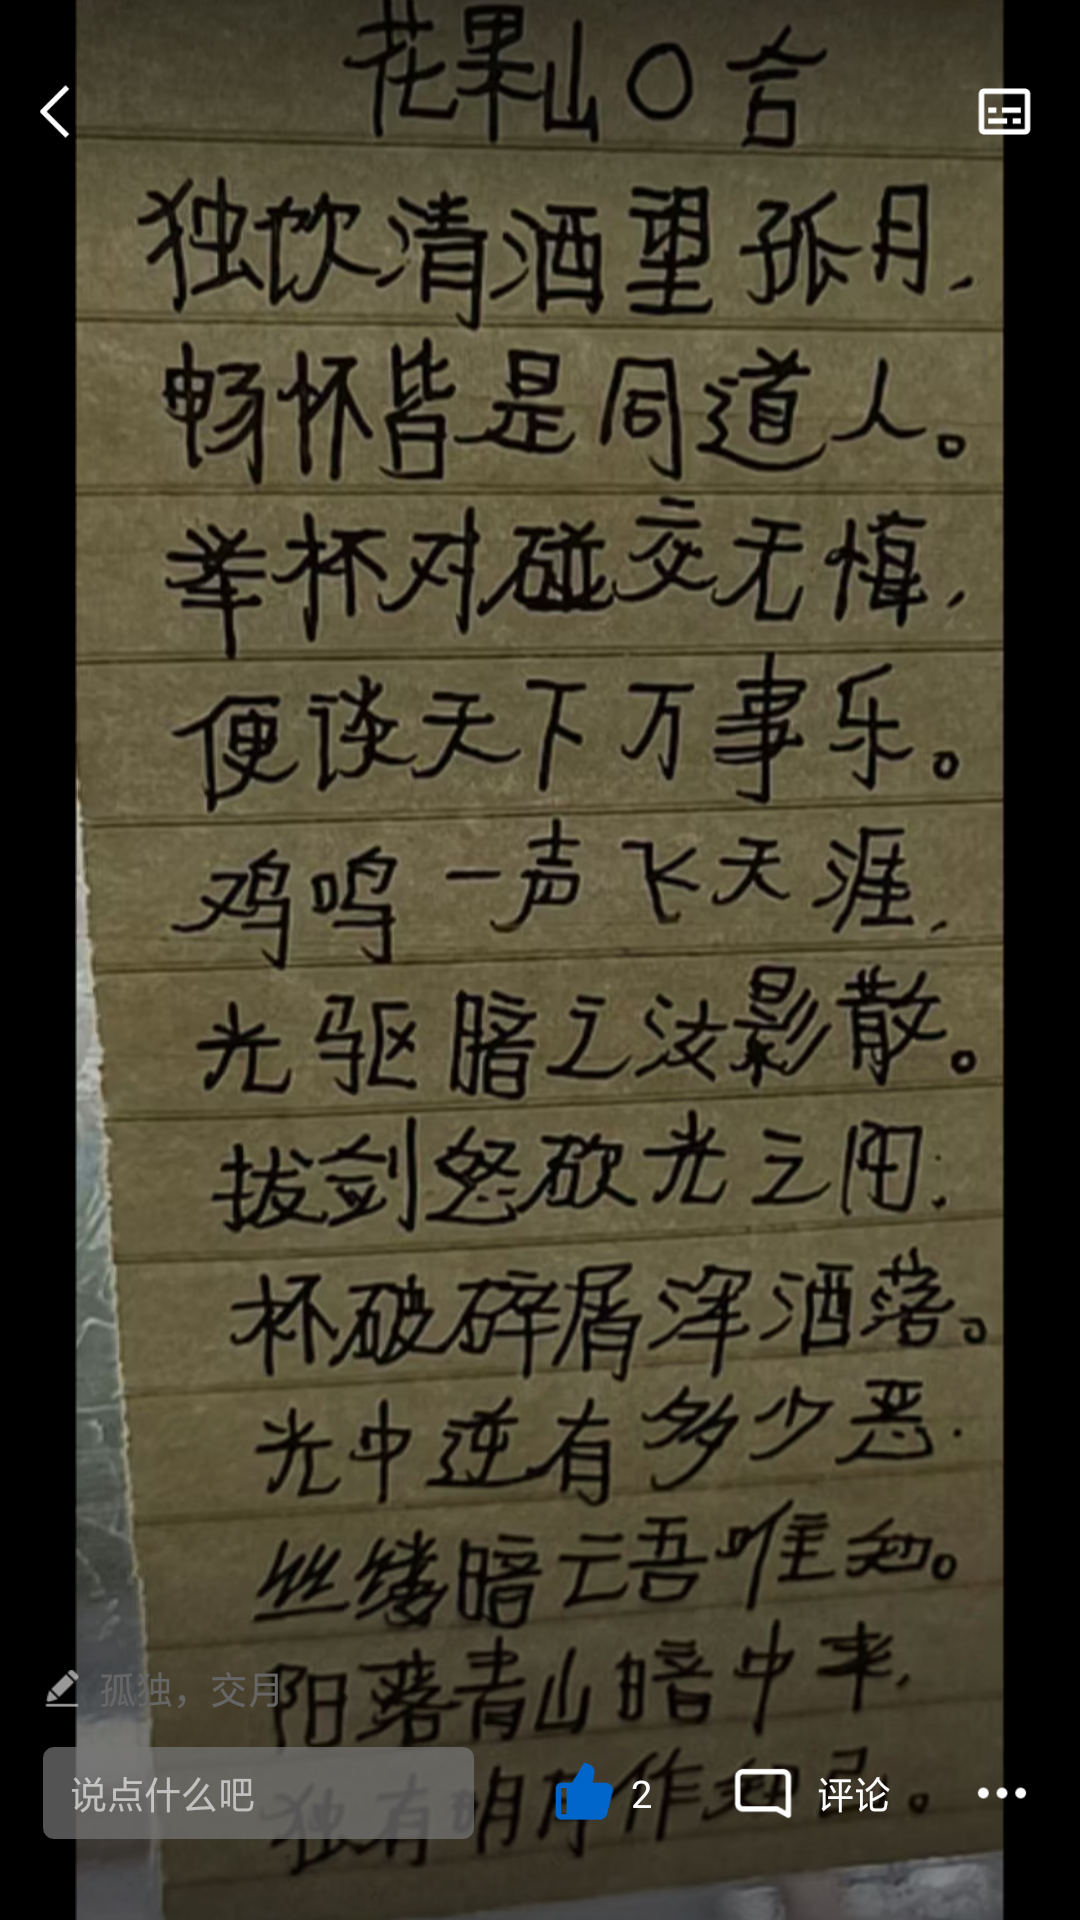 花果山〇合
独饮清酒望孤月,
畅怀皆是同道人。
举杯对碰交无悔,
便谈天下万事乐。
鸡鸣一声飞天涯,
光驱暗之汝影散。
拔剑怒砍光之阳;
杯破碎屑浑洒落。
光中逆有多少恶.
丝缕暗云吾唯知。
孤独，交月
阳落青山暗中来,
独有明月作知己。
说点什么吧
2
评论